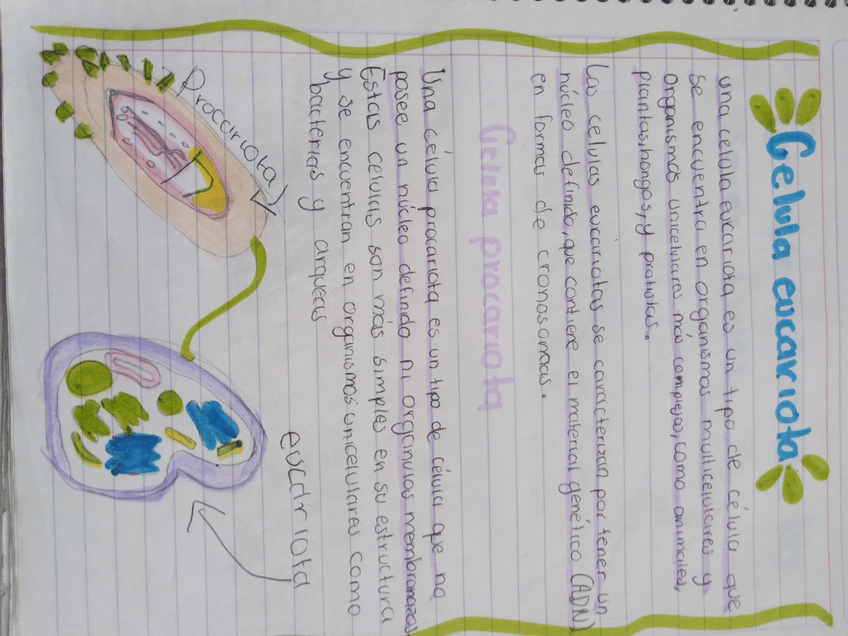 Celula eucariota
una célula eucariota es un tipo de célula que
se encuentra en organismos multicelulares y
organismos unicelulares más complejos, como animales,
plantas, hongos, y protistas.
Las celulas eucariotas se caracterizan por tener un
núcleo definido, que contiene el material genético (ADN)
en formas de cronosomas.
Celula procariota
Una célula procariota es un tipo de célula que no
posee un núcleo definido ni orgánulos membranosos.
Estas células son más simples en su estructura
y se encuentran en organismos unicelulares como
bacterias y arqueas
Procariota
eucariota